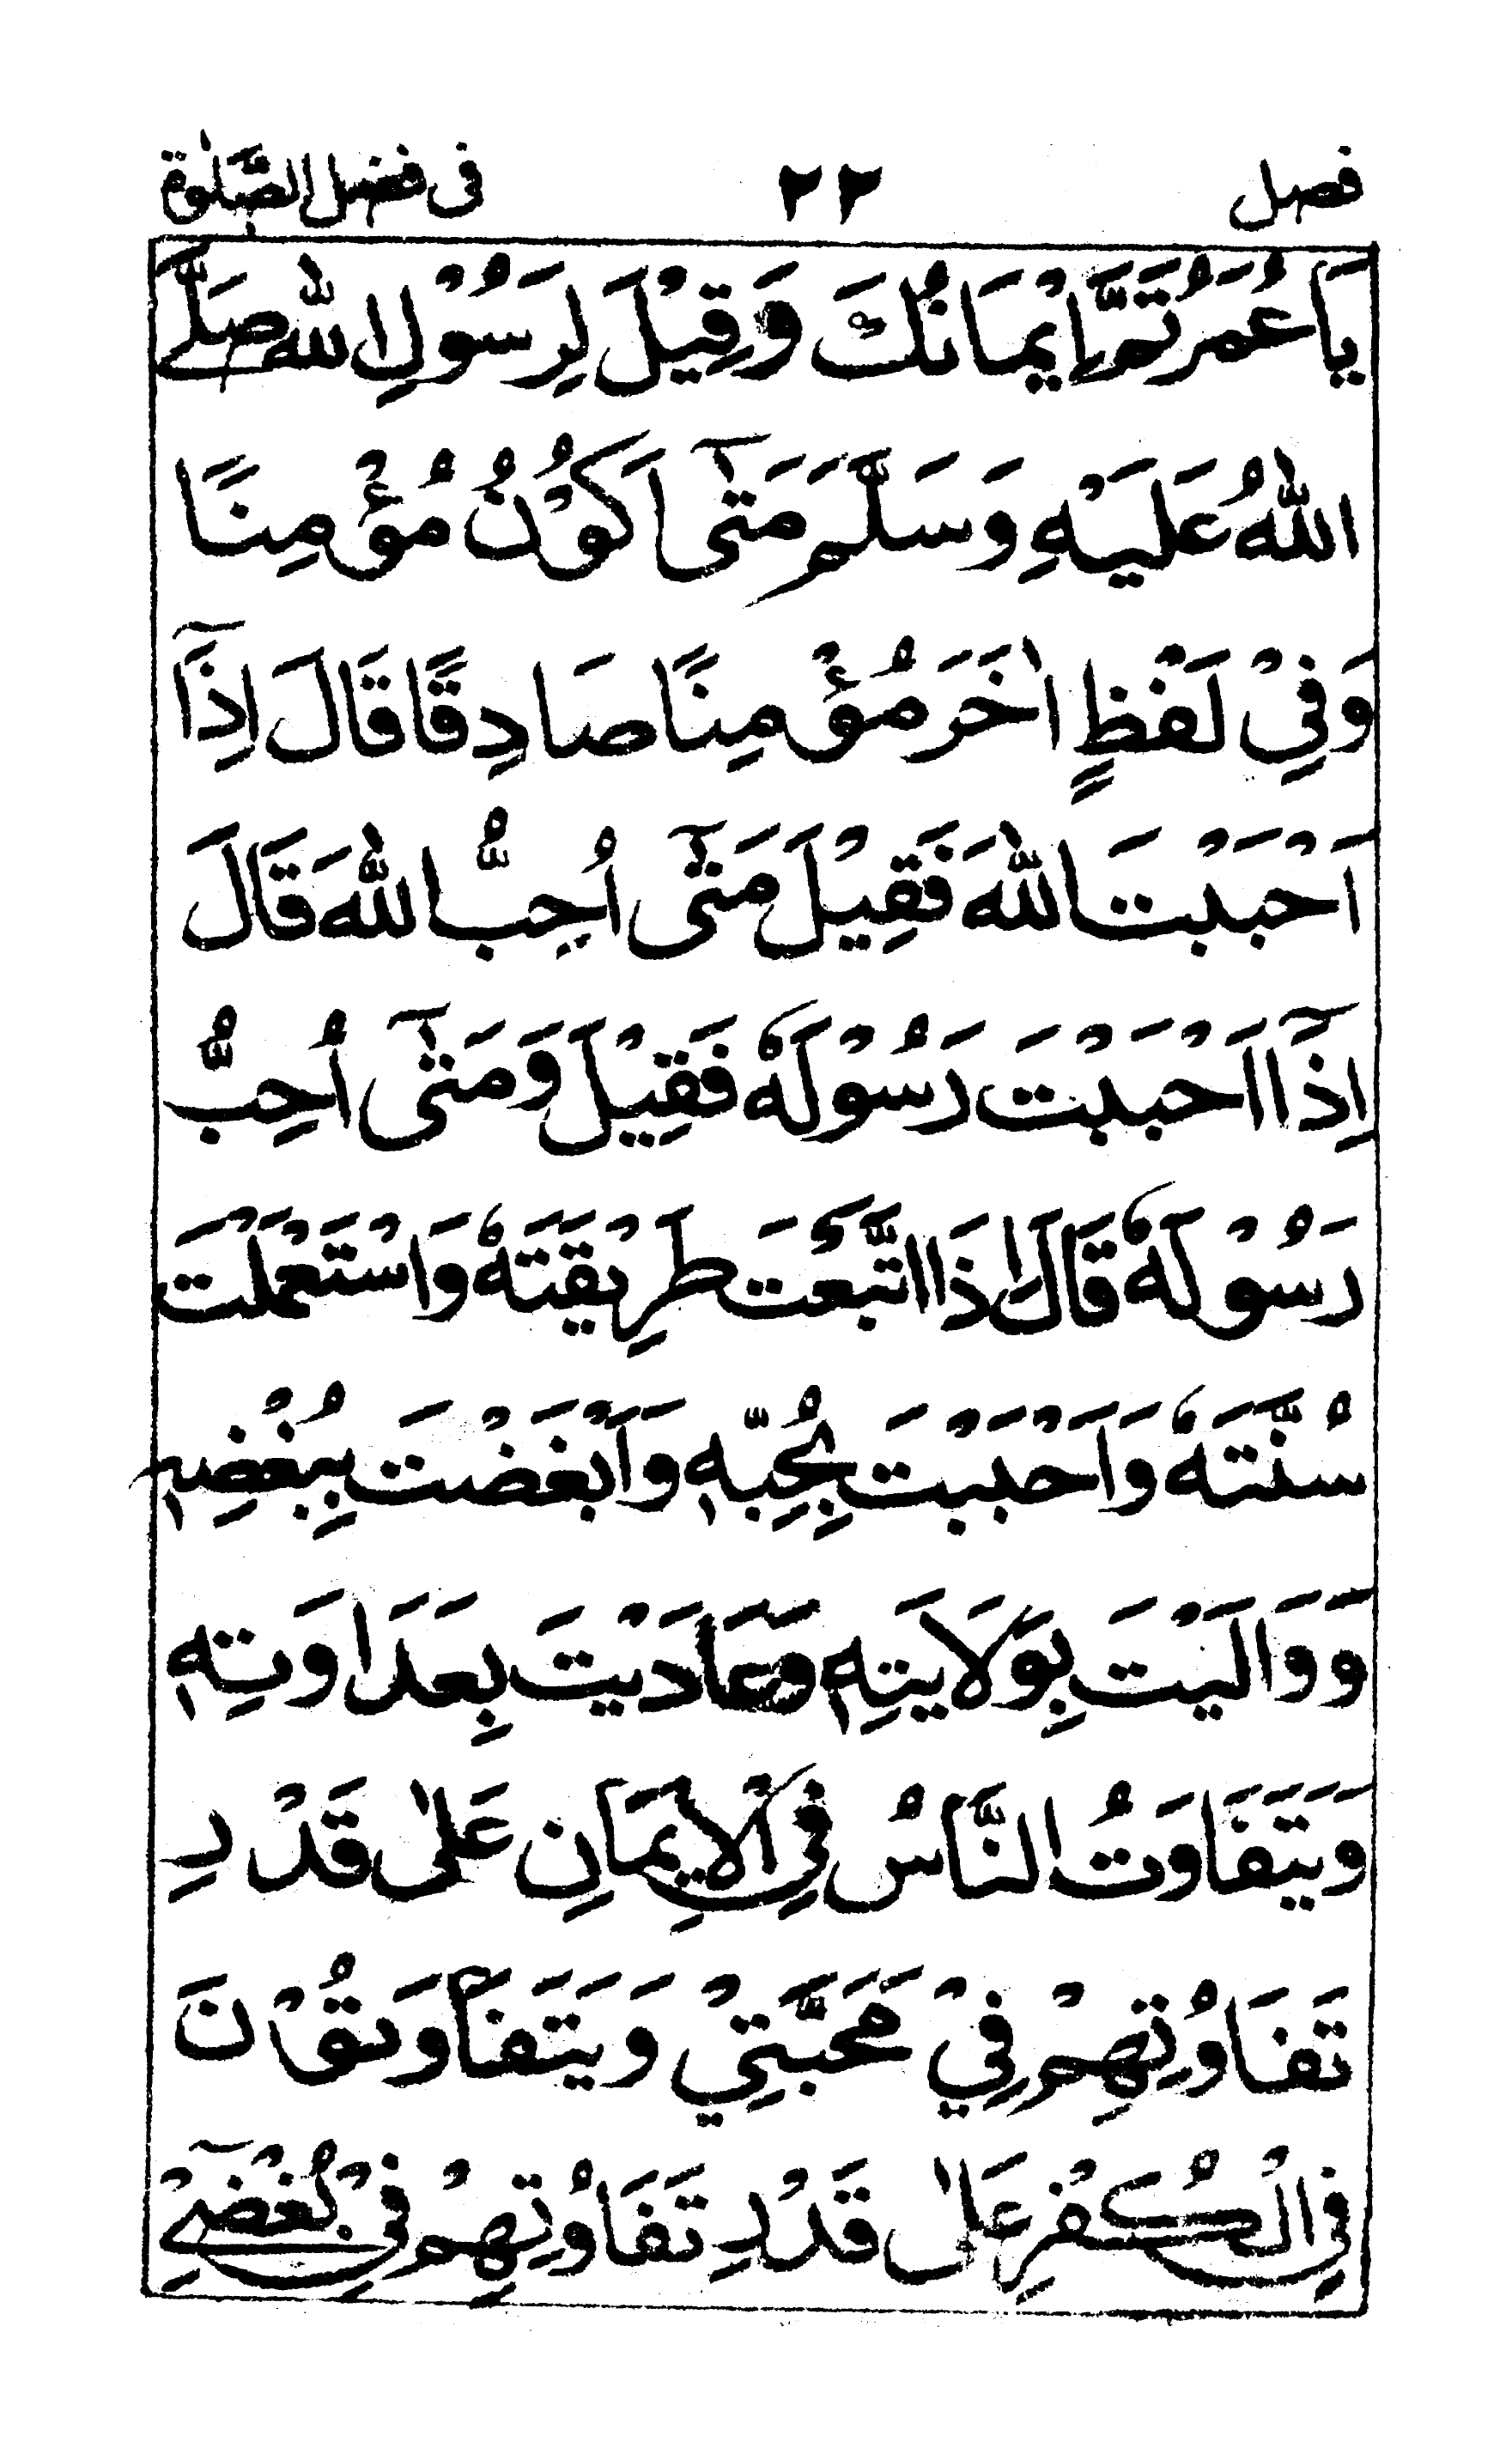 فصل ٢٢ فى فضل الصَّلٰوة
يَا عُمَرُ تَمَّ اِيْمَانُكَ وَقِيْلَ لِرَسُوْلِ اللهِ صَلَّى
اللهُ عَلَيْهِ وَسَلَّمَ مَتٰٓى اَكُوْنُ مُؤْمِنًا
وَفِيْ لَفْظٍ اٰخَرَ مُؤْمِنًا صَادِقًا قَالَ اِذَآ
اَحْبَبْتَ اللهَ فَقِيْلَ مَتٰٓى اُحِبُّ اللهَ قَالَ
اِذَآ اَحْبَبْتَ رَسُوْلَهٗ فَقِيْلَ وَمَتٰٓى اُحِبُّ
رَسُوْلَهٗ قَالَ اِذَا اتَّبَعْتَ طَرِيْقَتَهٗ وَاسْتَعْمَلْتَ
سُنَّتَهٗ وَاَحْبَبْتَ بِحُبِّهٖ وَاَبْغَضْتَ بِبُغْضِهٖ
وَوَالَيْتَ بِوَلَايَتِهٖ وَعَادَيْتَ بِعَدَاوَتِهٖ
وَيَتَفَاوَتُ النَّاسُ فِي الْاِيْمَانِ عَلٰى قَدْرِ
تَفَاوُتِهِمْ فِيْ مَحَبَّتِيْ وَيَتَفَاوَتُوْنَ
فِي الْكُفْرِ عَلٰى قَدْرِ تَفَاوُتِهِمْ فِيْ بُغْضِيْٓ